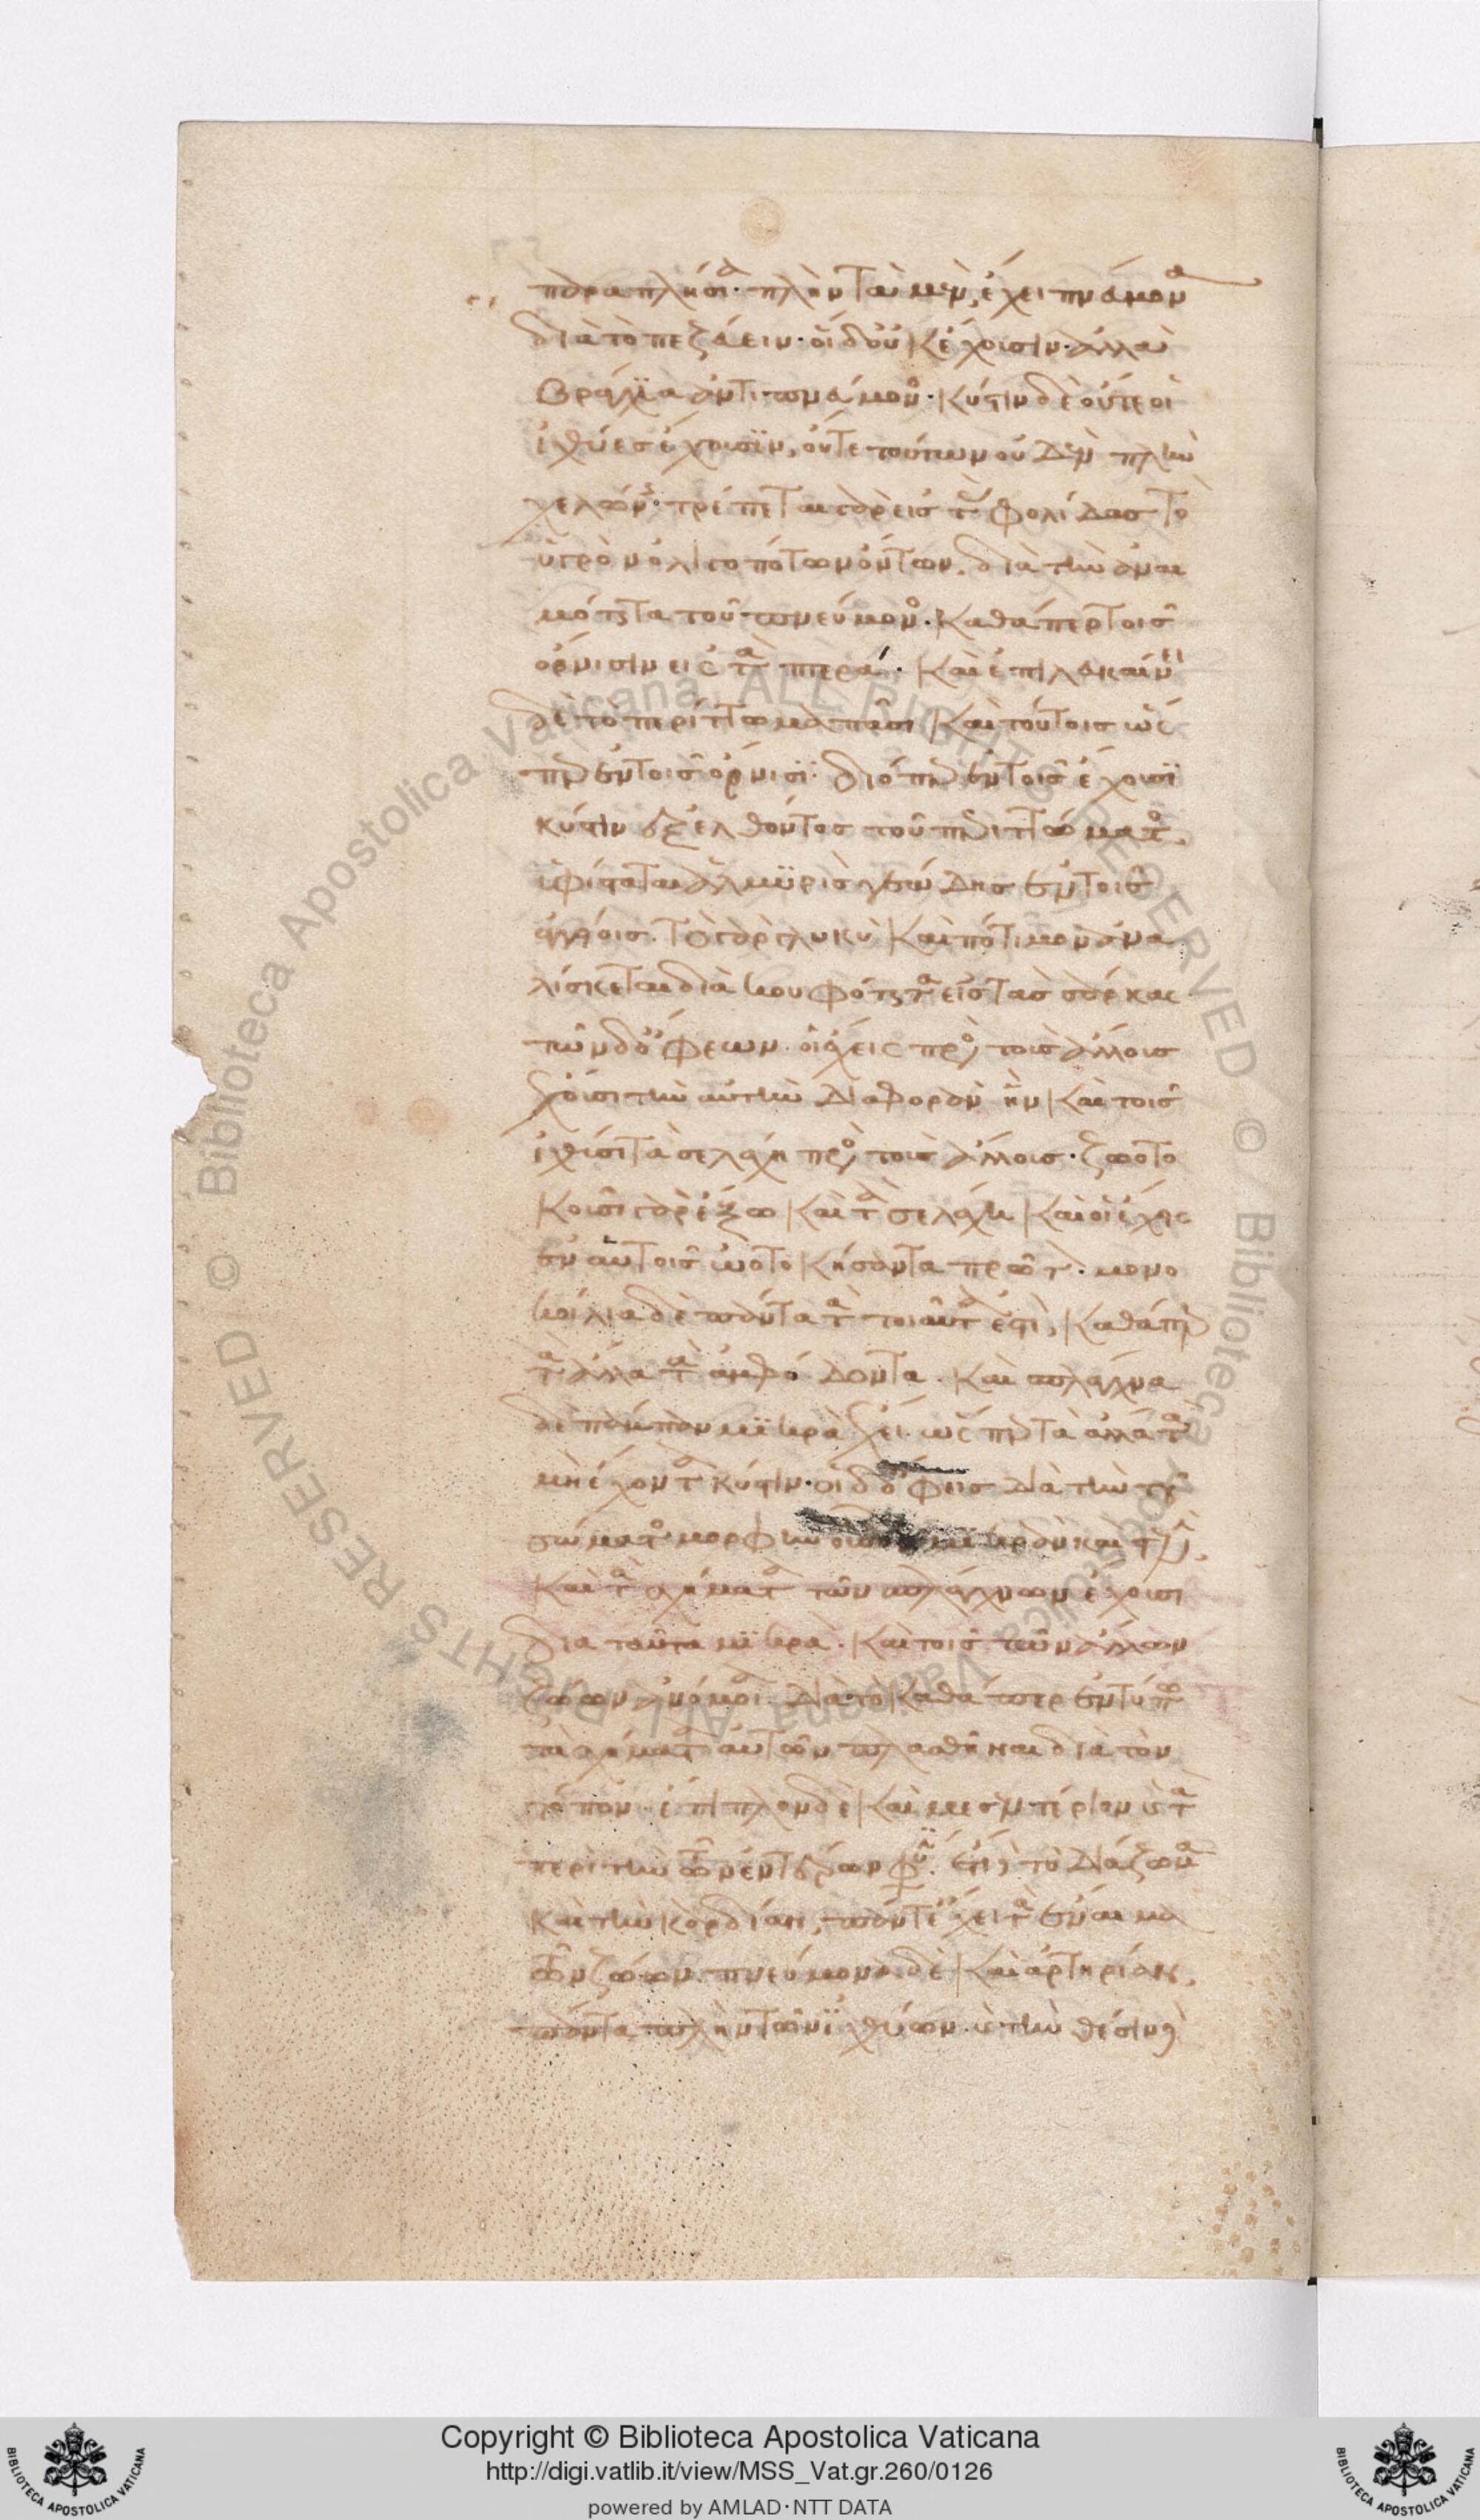 παραπλήσια· πλὴν τὰ μὲν ἔχει πνεύμονα
διὰ τὸ πεζεύειν· οἱ δ' οὐκ ἔχουσιν· ἀλλὰ
βράγχια ἀντὶ πνεύμονος· κύστιν δὲ οὔτε οἱ
ἰχθύες ἔχουσιν, οὔτε τούτων οὐδὲν πλὴν
χελώνης· τρέπεται γὰρ εἰς τὰς φολίδας τὸ
ὑγρὸν ὀλιγοπότων ὄντων. διὰ τὴν ἀναι
μότητα τοῦ πνεύμονος. καθάπερ τοῖς
ὄρνισιν εἰς τὰ πτερά. καὶ ἐπιλευκαίνει
δὲ τὸ περίττωμα πᾶσι καὶ τούτοις ὥσ
περ ἐν τοῖς ὄρνισι· διόπερ ἐν τοῖς ἔχουσι
κύστιν ἐξελθόντος τοῦ περιττώματος.
ὑφίσταται ἁλμυρὶς γεώδης ἐν τοῖς
ἀγγείοις. τὸ γὰρ γλυκὺ καὶ πότιμον ἀνα
λίσκεται διὰ κουφότητα εἰς τὰς σάρκας
τῶν δ' ὄφεων οἱ ἔχεις πρὸς τοὺς ἄλλους
ἔχουσι τὴν αὐτὴν διαφορὰν ἣν καὶ τοῖς
ἰχθύσι τὰ σελάχη πρὸς τοὺς ἄλλους· ζωοτο
κοῦσι γὰρ ἔξω καὶ τὰ σελάχη καὶ οἱ ἔχεις
ἐν αὑτοῖς ὠοτοκήσαντα πρῶτον. μονο
κοίλια δὲ πάντα τὰ τοιαῦτά ἐστι, καθάπερ
τὰ ἄλλα τὰ ἀμφόδοντα. καὶ σπλάγχνα
δὲ πάμπαν μικρὰ ἔχει. ὥσπερ τὰ ἄλλα τὰ
μὴ ἔχοντα κύστιν· οἱ δ' ὄφεις διὰ τὴν τοῦ
σώματος μορφὴν οὖσαν μακρὰν καὶ στενήν.
καὶ τὰ σχήματα τῶν σπλάγχνων ἔχουσι
διὰ ταῦτα μακρὰ. καὶ τοῖς τῶν ἄλλων
ζώων ἀνόμοια. διὰ τὸ καθάπερ ἐν τύπῳ
τὰ σχήματα αὐτῶν πλασθῆναι διὰ τὸν
τόπον. ἐπίπλοον δὲ καὶ μεσεντέριον καὶ τὰ
περὶ τὴν τῶν ἐντέρων φύσιν. ἔτι δὲ τὸ διάζωμα
καὶ τὴν καρδίαν, πάντ' ἔχει τὰ ἔναιμα
τῶν ζώων. πνεύμονα δὲ καὶ ἀρτηρίαν.
πάντα πλὴν τῶν ἰχθύων. καὶ τὴν θέσιν δὲ